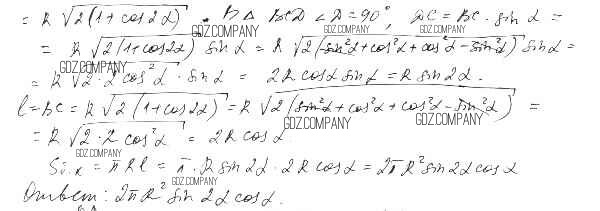 = R √2(1+cos2α). В Δ BCD ∠D=90°, DC = BC · sin α =
= R √2(1+cos2α) sin α = R √2(sin²α+cos²α+cos²α-sin²α) sin α =
= R √2·2cos²α · sin α = 2R cosα sinα = R sin 2α.
l = BC = R √2(1+cos2α) = R √2(sin²α+cos²α+cos²α-sin²α) =
= R √2·2 cos²α = 2R cosα
= πRl = π · R sin 2α · 2R cosα = 2πR² sin2α cosα
Ответ: 2πR² sin 2α cosα.
GDZ.COMPANY
GDZ.COMPANY
GDZ.COMPANY
GDZ.COMPANY
GDZ.COMPANY
GDZ.COMPANY
GDZ.COMPANY
GDZ.COMPANY